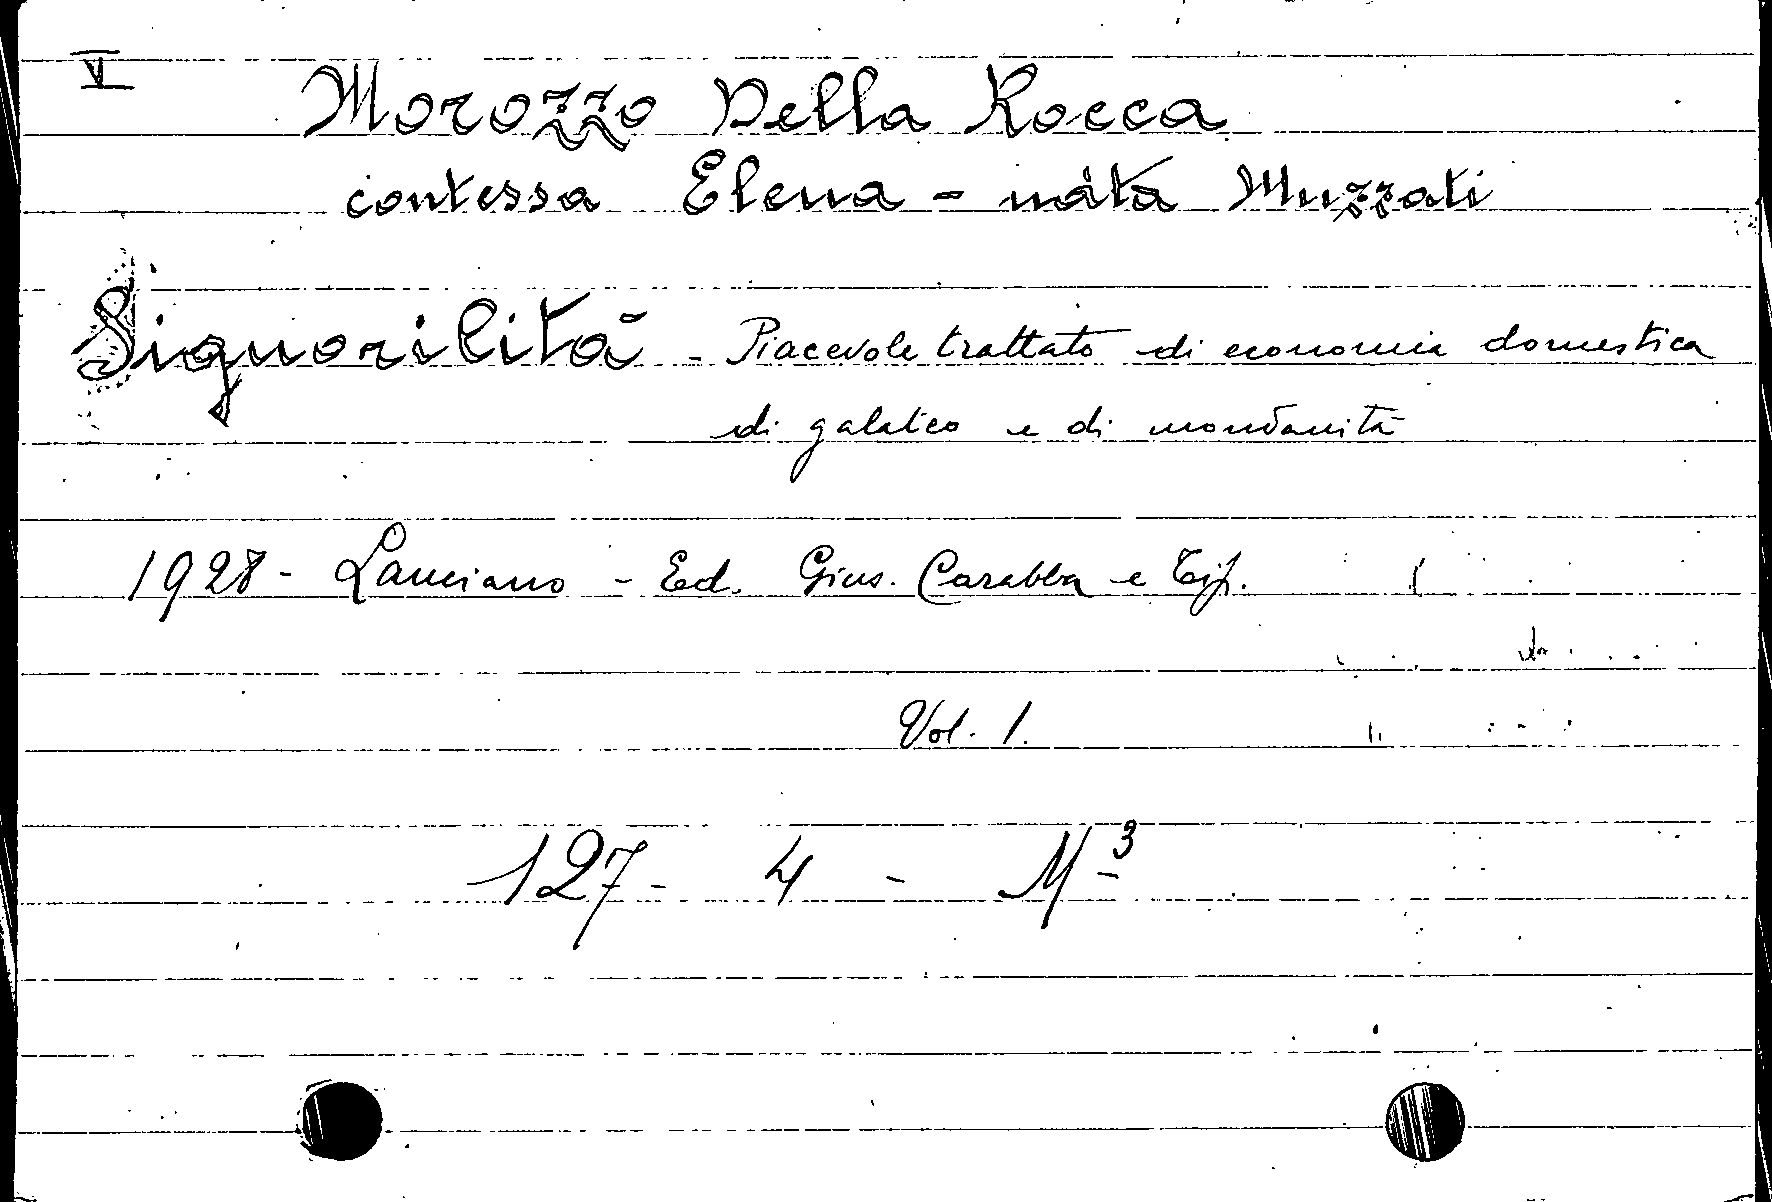 V
Morozzo Della Rocca
contessa Elena - nata Muzzati
Signorilità - Piacevole trattato di economia domestica
di galateo e di mondanità
1928 - Lanciano - Ed. Gius. Carabba e Tip.
Vol. 1.
127 - 4 - M3